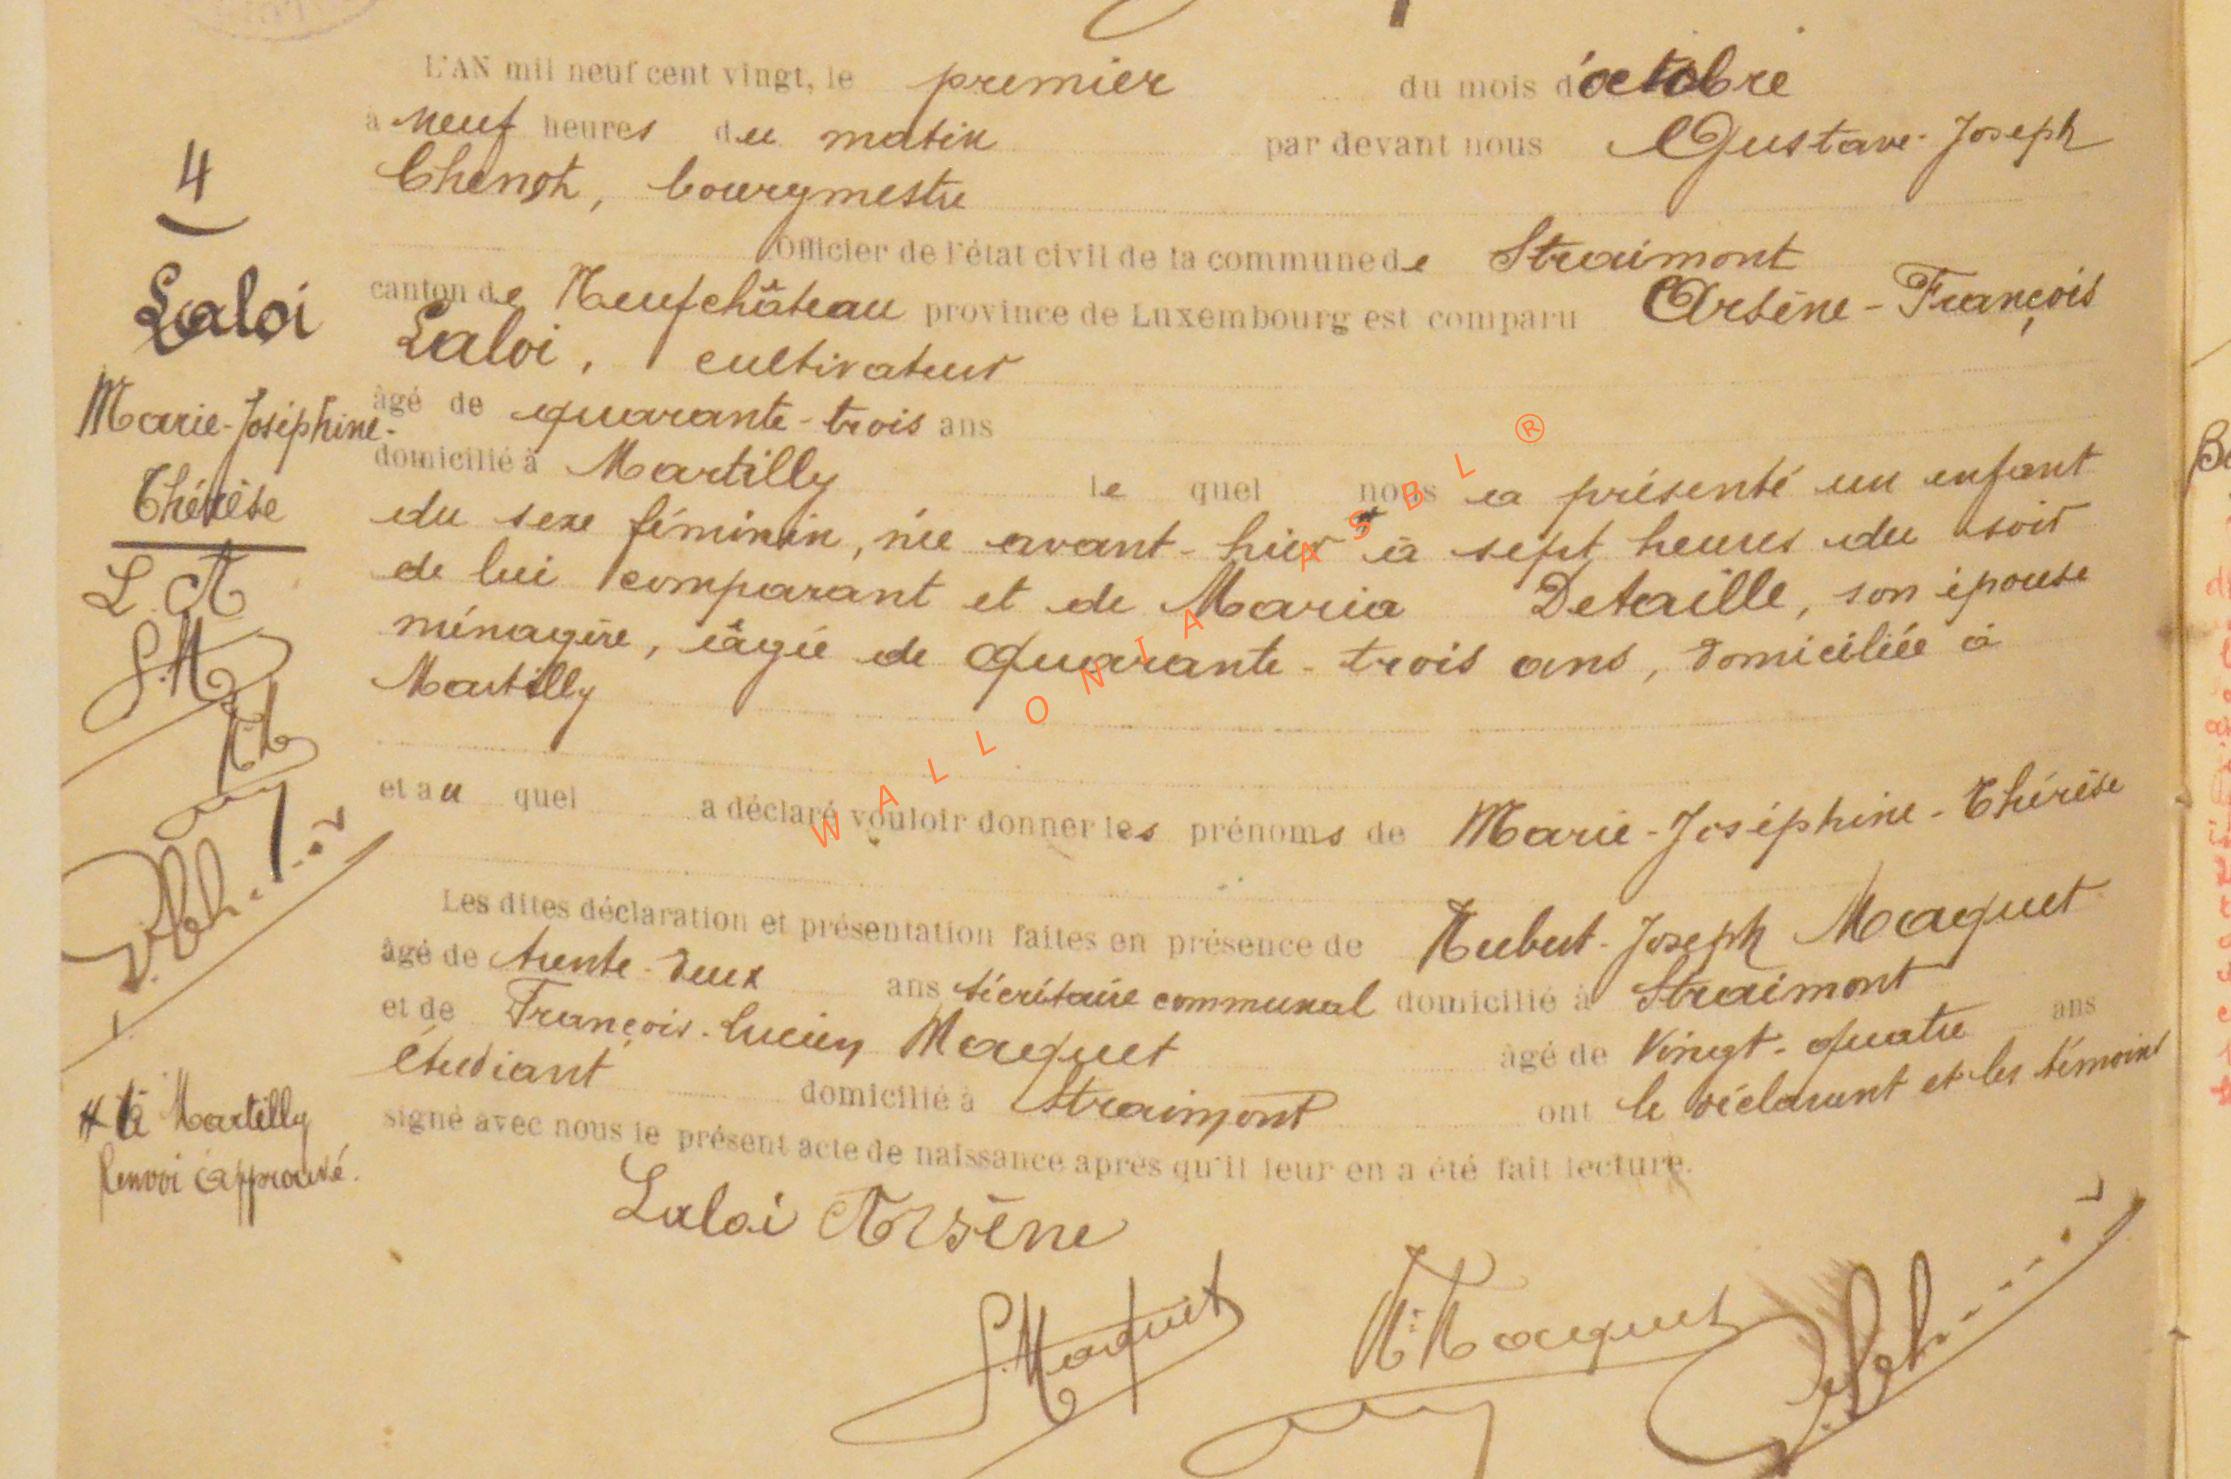 L'AN mil neuf cent vingt, le premier du mois d'octobre
à neuf heures du matin par devant nous Gustave-Joseph
Chenot, bourgmestre
Officier de l'état civil de la commune de Straimont
canton de Neufchâteau province de Luxembourg est comparu Arsène-François
Laloi, cultivateur
âgé de quarante-trois ans
domicilié à Martilly le quel nous a présenté un enfant
du sexe féminin, née avant-hier # à sept heures du soir
de lui comparant et de Maria Detaille, son épouse
ménagère, âgée de quarante-trois ans, domiciliée à
Martilly
et au quel a déclaré vouloir donner les prénoms de Marie-Joséphine-Thérèse
Les dites déclaration et présentation faites en présence de Hubert-Joseph Maquet
âgé de trente-deux ans sécrétaire communal domicilié à Straimont
et de François-Lucien Maquet âgé de vingt-quatre ans
étudiant domicilié à Straimont ont le déclarant et les témoins
signé avec nous le présent acte de naissance après qu'il leur en a été fait lecture.
Laloi Arsène
Maquet
Maquet
4
Laloi
Marie-Joséphine-
Thérèse
L. A
# à Martilly
Renvoi approuvé.
WALLONIA ASBL ®